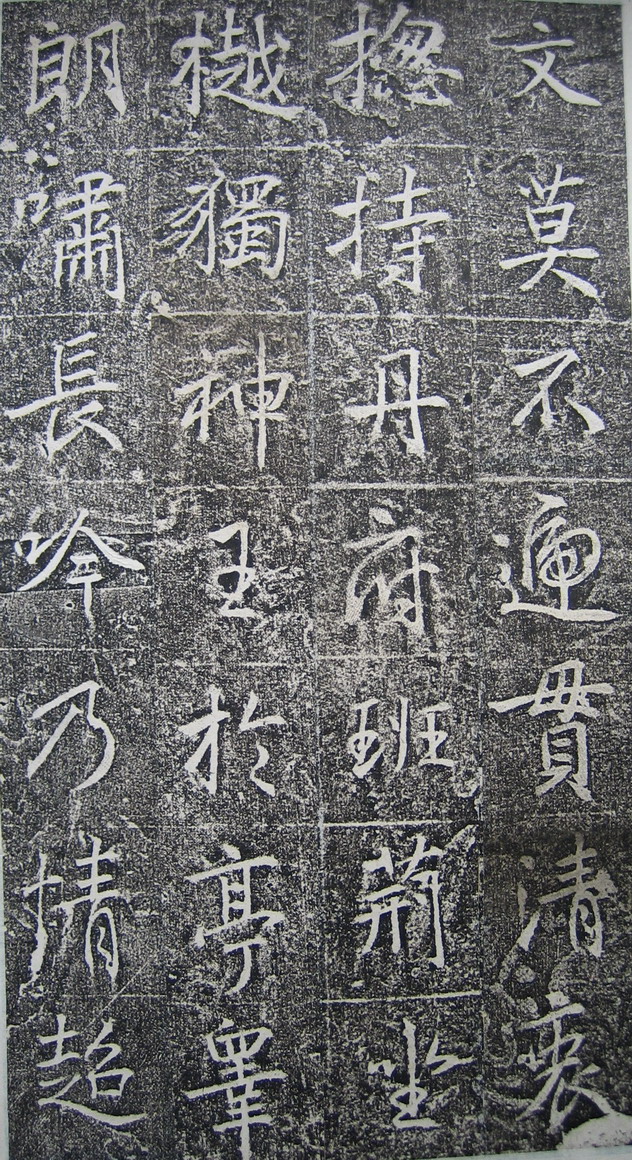 文莫不遍貫清衷
摠持丹府班荊坐
樾獨神王於亭睪
朗嘯長吟乃情超